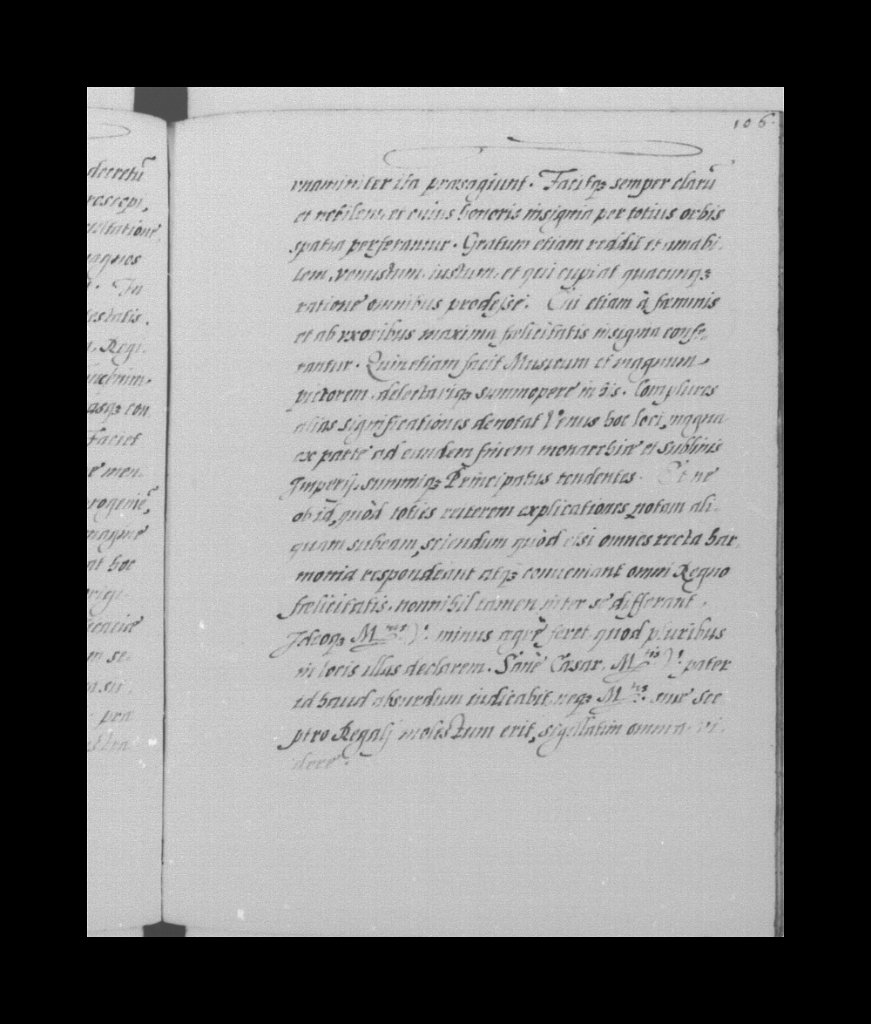 106.
unanimiter ita præsagiunt. Facitqꝫ semper clarū
et nobilem, et cuius honoris insignia per totius orbis
spatia perferantur. Gratum etiam reddit et amabi-
lem, venustum, iustum, et qui cupiat quacunqꝫ
ratione omnibus prodesse. Cui etiam à fæminis
et ab vxoribus maxima fœlicitatis insignia confe-
rantur. Quin etiam facit Musicum et magnum
pictorem, delectariqꝫ summopere in his. Complures
alias significationes denotat Venus hoc loci, magna
ex parte ad eundem finem monarchiæ et sublimis
Imperij, summiqꝫ Principatus tendentes. Et ne
ob id, quòd toties reiterem explicationes, notam ali-
quam subeam, sciendum quòd etsi omnes recta har-
monia respondeant atqꝫ conueniant omni Regno
fœlicitatis, nonnihil tamen inter se differant.
Ideoqꝫ M. minus ægrè feret quod pluribus
in locis illas declarem. Sanè Cæsar. M. pater
id haud absurdum iudicabit, neqꝫ M. suæ sce-
ptro Regalj molestum erit, sigillatim omnia vi-
dere.
decretū
magnes
Regi-
iasqꝫ con
faciet
men-
progeniē,
imagine
at hoc
origi-
se-
præ